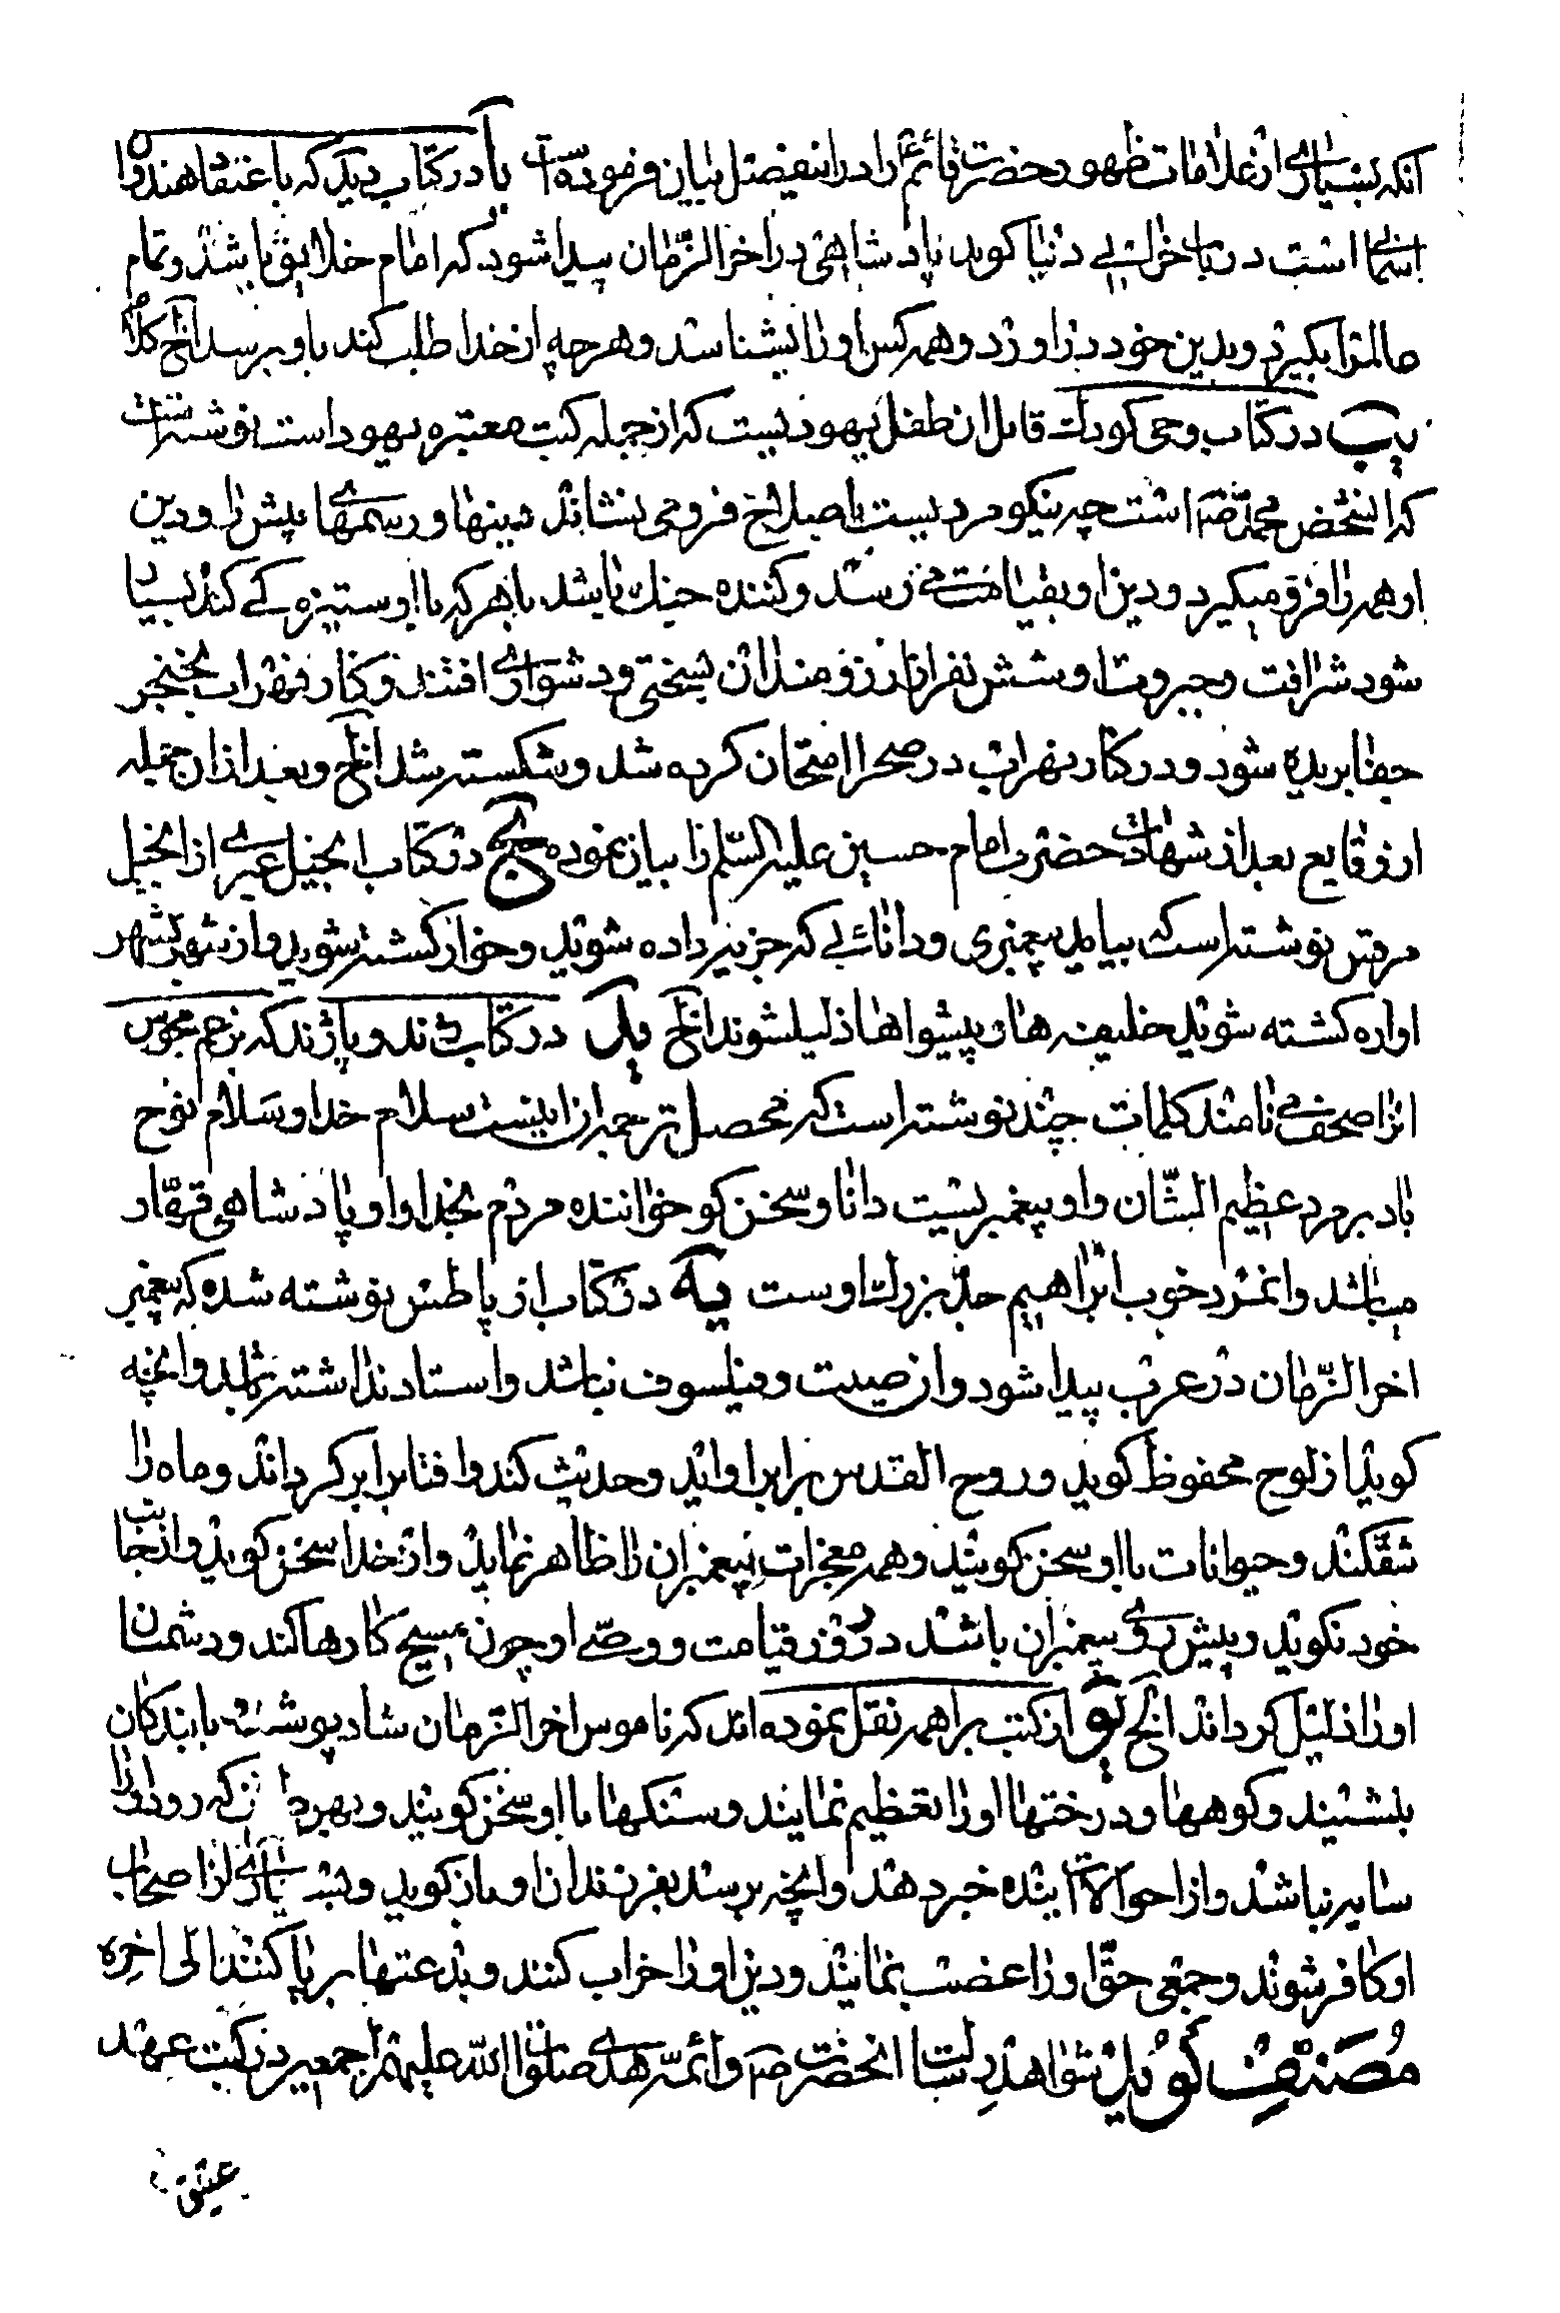 آنکه بسیاری از علامات ظهور حضرت قائم ع را در این فصل بیان فرموده است یا در کتاب دیگر که باعتقاد هندوان
آسمانی است در باب خرابی دنیا گوید پادشاهی در اخرالزمان پیدا شود که امام خلایق باشد و تمام
عالم را بگیرد و بدین خود در اورد و همه کس او را بشناسد و هر چه از خدا طلب کند باو برسد الخ کلامه
یب در کتاب وحی کودک قایل ان طفل یهودیست که از جمله کتب معتبره یهود است نوشته است
که انشخص محمد ص است چه نیکو مردیست باصل الخ فرومی نشاند دینها و رسمهای پیش را و دین
او همه را فرو میگیرد و دین او بقیامت می رسد و کننده جنک باشد با هر که با او ستیزه کی کند بسیار
شود شرافت و جبروت او شش نفر از ارزومندان بسختی و دشواری افتند و کنار نهر اب بخنجر
جفا بریده شود و در کنار نهر اب در صحرا امتحان کرده شد و شکسته شد الخ و بعد از ان جمله
از وقایع بعد از شهادت حضرت امام حسین علیه السلم را بیان نموده یج در کتاب انجیل عیسی از انجیل
مرقس نوشته است که بیاید پیغمبری و دانائی که جزیه داده شوید و خوار گشته شوید و از شهر بشهر
اواره گشته شوید خلیفه ها و پیشواها ذلیل شوند الخ ید در کتاب زند و پاژند که بزعم مجوس
انرا صحف می نامند کلمات چند نوشته است که محصل ترجمه ان اینست سلام خدا و سلام نوح
باد بر مرد عظیم الشان و او پیغمبریست دانا و سخن گو خواننده مردم بخدا و او پادشاهی قهار
میباشد و انمرد خوب ابراهیم جد بزرک اوست یه در کتاب از پاطس نوشته شده که پیغمبر
اخرالزمان در عرب پیدا شود و از صیت و فیلسوف نباشد و استاد نداشته باشد و انچه
گوید از لوح محفوظ گوید و روح القدس برابر او اید و حدیث کند و افتاب را برگرداند و ماه را
شق کند و حیوانات با او سخن گویند و همه معجزات پیغمبران را ظاهر نماید و از خدا سخن گوید و از جانب
خود نگوید و پیش رو پیغمبران باشد در روز قیامت و وصی او چون مسیح کارها کند و دشمنان
او را ذلیل گرداند الخ یو از کتب براهمه نقل نموده اند که ناموس اخرالزمان شاد پوشد با بندگان
بنشیند و کوهها و درختها او را تعظیم نمایند و سنگها با او سخن گویند و بهر که رود او را
سایه نباشد و از احوالات اینده خبر دهد و انچه برسد بفرزندان او باز گوید و بسیاری از اصحاب
او کافر شوند و جمعی حق او را غصب نمایند و دین او را خراب کنند و بدعتها برپا کنند الی اخره
مصنف گوید شواهد رسالت انحضرت ص و ائمه هدی صلوات الله علیهم اجمعین در کتب عهد
عتیق